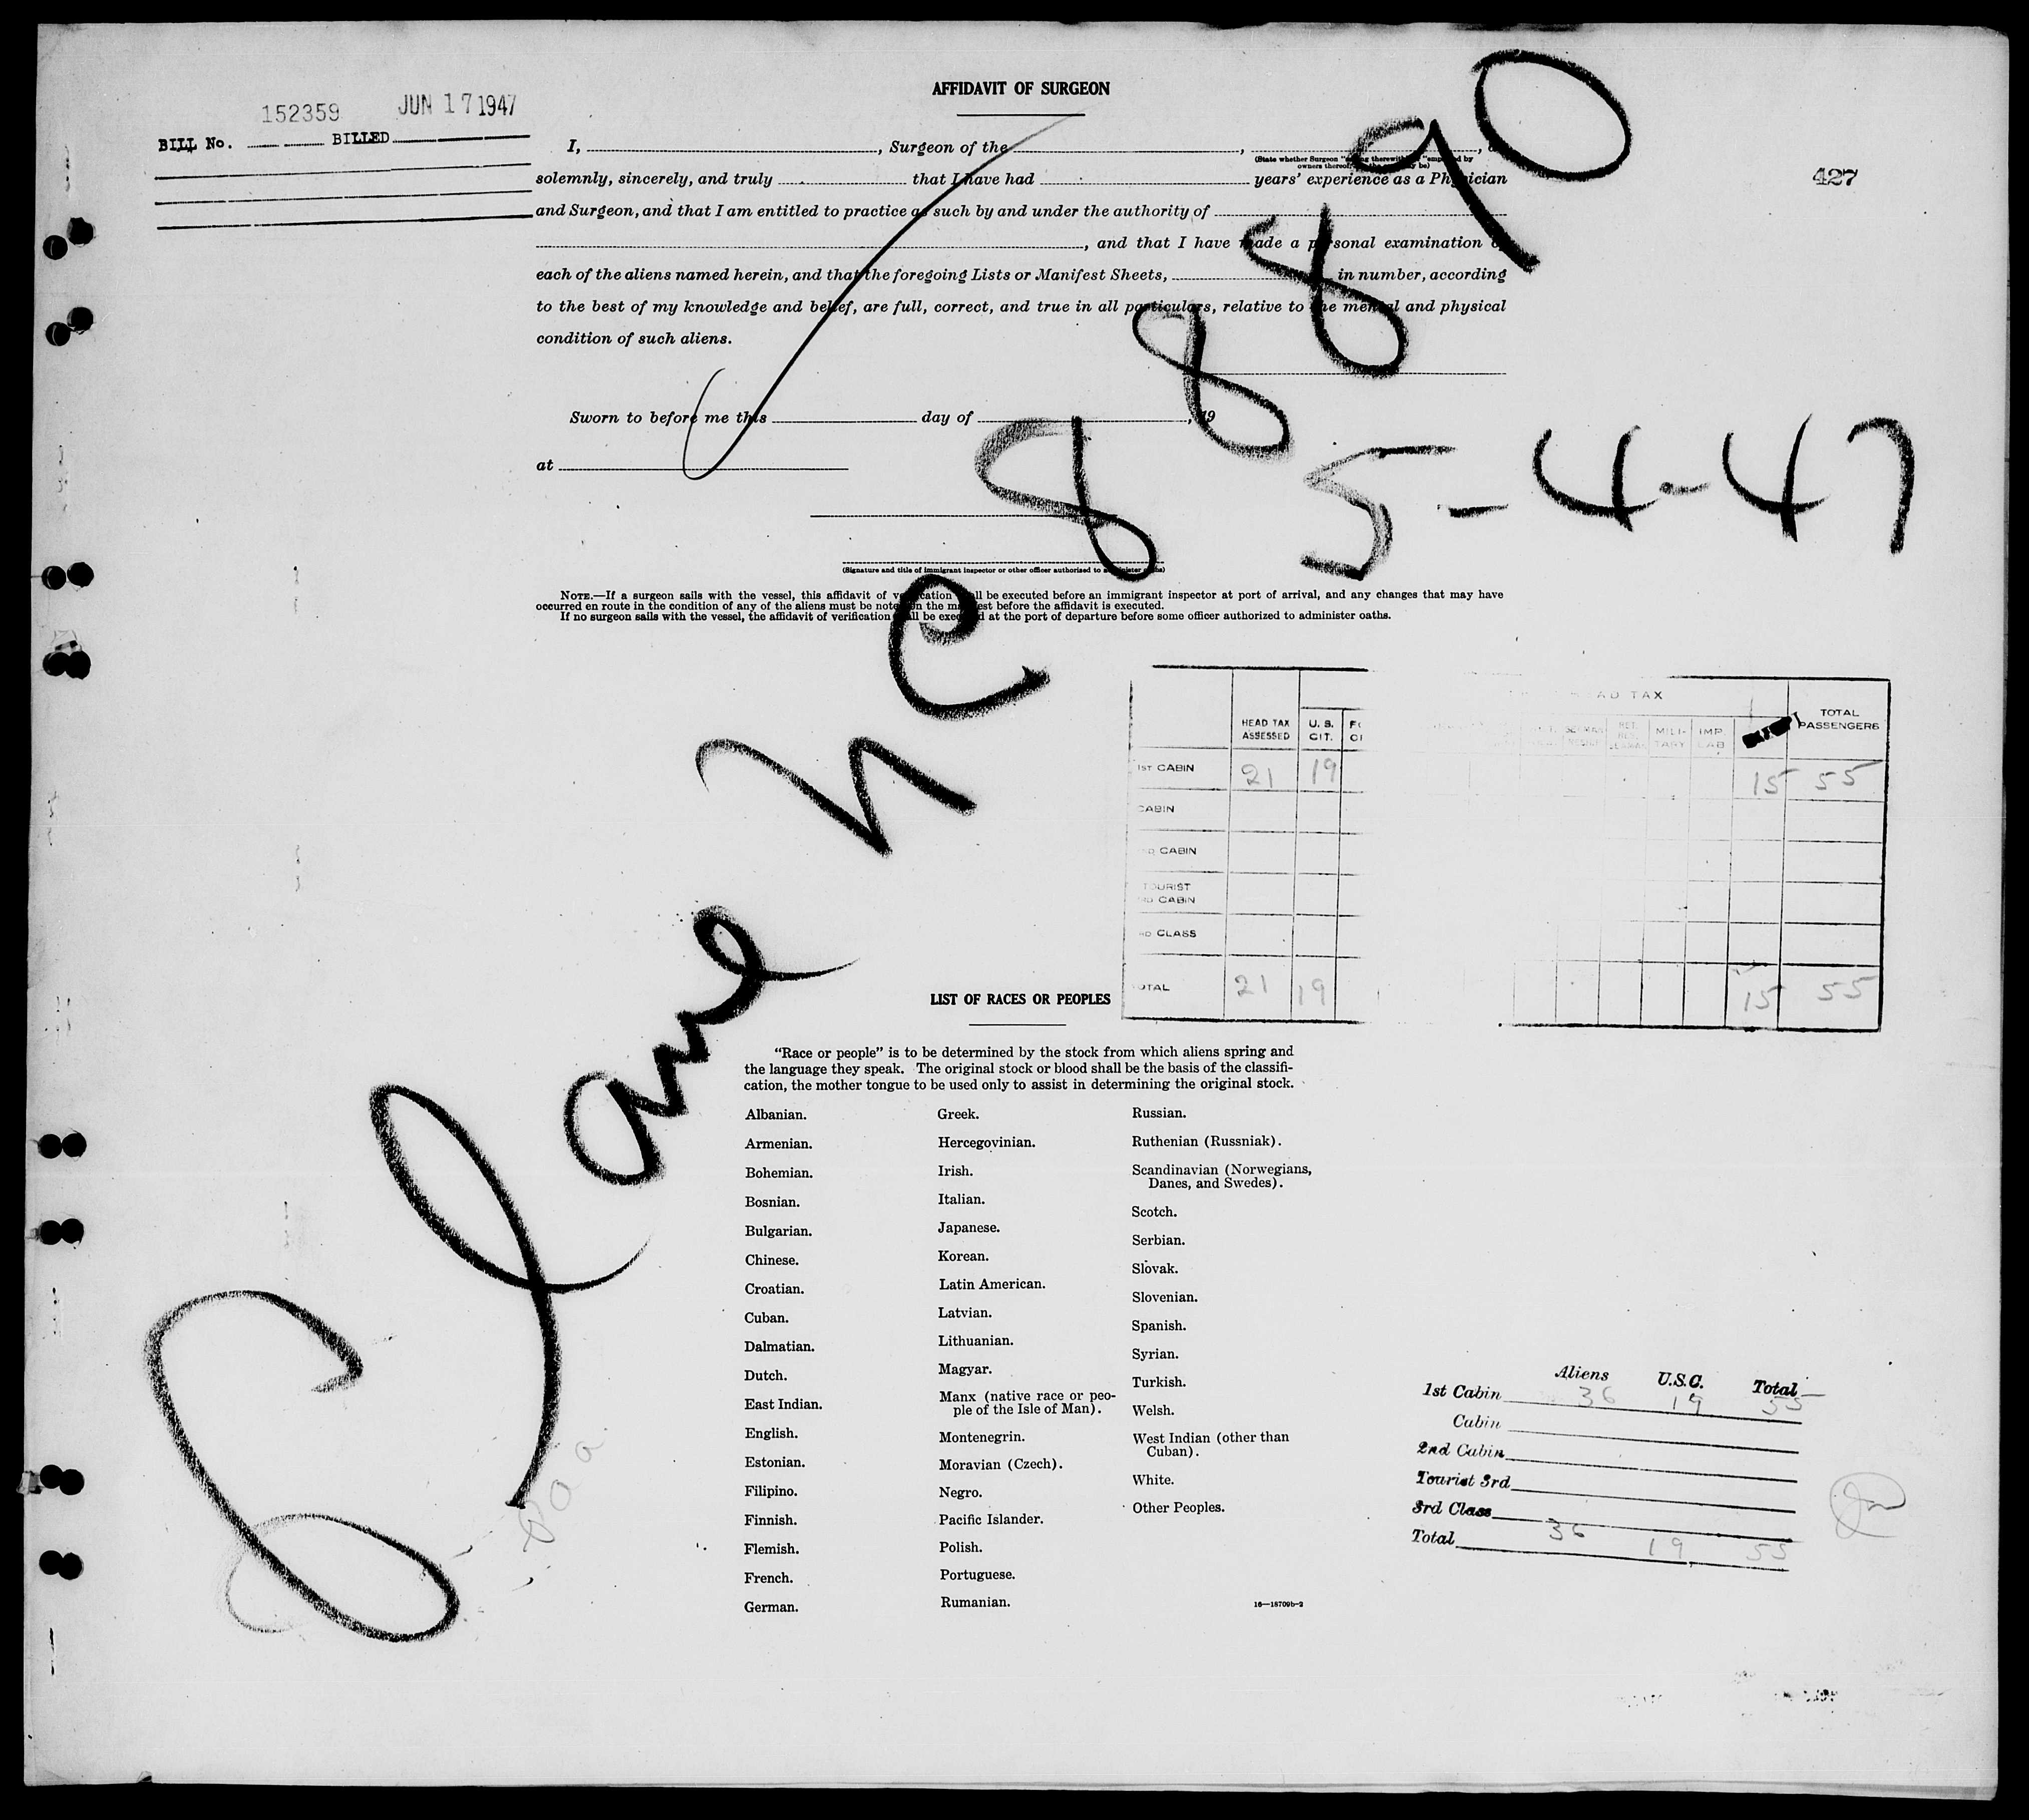 AFFIDAVIT OF SURGEON
152359 JUN 17 1947
BILL No. BILLED
427
I, , Surgeon of the , ,
(State whether Surgeon
owners thereof,
solemnly, sincerely, and truly that I have had years' experience as a Physician
and Surgeon, and that I am entitled to practice as such by and under the authority of
, and that I have made a personal examination
each of the aliens named herein, and that the foregoing Lists or Manifest Sheets, in number, according
to the best of my knowledge and belief, are full, correct, and true in all particulars, relative to the mental and physical
condition of such aliens.
Sworn to before me this day of , 19
at
(Signature and title of immigrant inspector or other officer authorized to administer oaths)
NOTE.—If a surgeon sails with the vessel, this affidavit of verification shall be executed before an immigrant inspector at port of arrival, and any changes that may have
occurred en route in the condition of any of the aliens must be noted on the manifest before the affidavit is executed.
If no surgeon sails with the vessel, the affidavit of verification shall be executed at the port of departure before some officer authorized to administer oaths.
Plane NC 88890
5-4-47
HEAD TAX
HEAD TAX ASSESSED U. S. CIT. MILI-TARY IMP. LAB TOTAL PASSENGERS
1ST CABIN 21 19 15 55
CABIN
CABIN
TOURIST
CABIN
CLASS
TOTAL 21 19 15 55
LIST OF RACES OR PEOPLES
"Race or people" is to be determined by the stock from which aliens spring and
the language they speak. The original stock or blood shall be the basis of the classifi-
cation, the mother tongue to be used only to assist in determining the original stock.
Albanian.
Armenian.
Bohemian.
Bosnian.
Bulgarian.
Chinese.
Croatian.
Cuban.
Dalmatian.
Dutch.
East Indian.
English.
Estonian.
Filipino.
Finnish.
Flemish.
French.
German.
Greek.
Hercegovinian.
Irish.
Italian.
Japanese.
Korean.
Latin American.
Latvian.
Lithuanian.
Magyar.
Manx (native race or peo-
ple of the Isle of Man).
Montenegrin.
Moravian (Czech).
Negro.
Pacific Islander.
Polish.
Portuguese.
Rumanian.
Russian.
Ruthenian (Russniak).
Scandinavian (Norwegians,
Danes, and Swedes).
Scotch.
Serbian.
Slovak.
Slovenian.
Spanish.
Syrian.
Turkish.
Welsh.
West Indian (other than
Cuban).
White.
Other Peoples.
16—18709b-2
Aliens U.S.C. Total
1st Cabin 36 19 55
Cabin
2nd Cabin
Tourist 3rd
3rd Class
Total 36 19 55